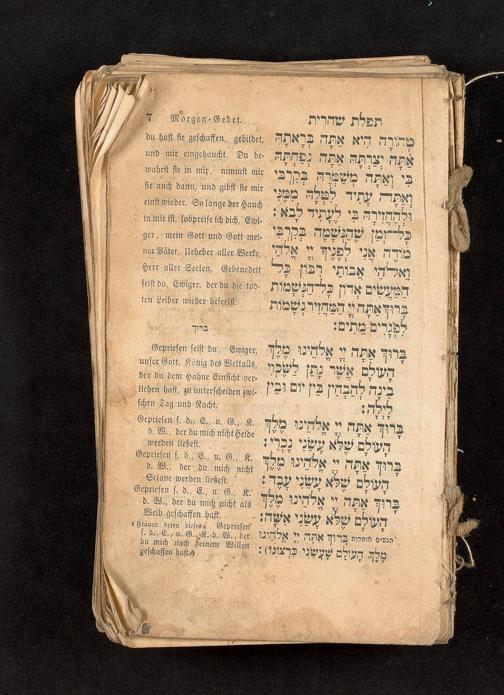 7 Morgen-Gebet.
du hast sie geschaffen, gebildet,
und mir eingehaucht. Du be-
wahrst sie in mir, nimmst mir
sie auch dann, und gibst sie mir
einst wieder. So lange der Hauch
in mir ist, lobpreise ich dich, Ewi-
ger, mein Gott und Gott mei-
ner Väter, Urheber aller Werke,
Herr aller Seelen. Gebenedeit
seist du, Ewiger, der du die tod-
ten Leiber wieder beseelst.
ברוך
Gepriesen seist du, Ewiger,
unser Gott, König des Weltalls,
der du dem Hahne Einsicht ver-
liehen hast, zu unterscheiden zwi-
schen Tag und Nacht.
Gepriesen s. d., E., u. G., K.
d. W., der du mich nicht Heide
werden ließest.
Gepriesen s. d., E., u. G., K.
d. W., der du mich nicht
Sclave werden ließest.
Gepriesen s. d., E., u. G., K.
d. W., der du mich nicht als
Weib geschaffen hast.
(Frauen beten dieses: Gepriesen
s. d., E., u. G., K. d. W., der
du mich nach deinem Willen
geschaffen hast.)
תפלת שהרית
טְהוֹרָה הִיא אַתָּה בְּרָאתָהּ
אַתָּה יְצַרְתָּהּ אַתָּה נְפַחְתָּהּ
בִּי וְאַתָּה מְשַׁמְּרָהּ בְּקִרְבִּי
וְאַתָּה עָתִיד לִטְּלָהּ מִמֶּנִּי
וּלְהַחֲזִירָהּ בִּי לֶעָתִיד לָבֹא:
כָּל־זְמַן שֶׁהַנְּשָׁמָה בְּקִרְבִּי
מוֹדֶה אֲנִי לְפָנֶיךָ יְיָ אֱלֹהַי
וֵאלֹהֵי אֲבוֹתַי רִבּוֹן כָּל־
הַמַּעֲשִׂים אֲדוֹן כָּל־הַנְּשָׁמוֹת
בָּרוּךְ אַתָּה יְיָ הַמַּחֲזִיר נְשָׁמוֹת
לִפְגָרִים מֵתִים:
בָּרוּךְ אַתָּה יְיָ אֱלֹהֵינוּ מֶלֶךְ
הָעוֹלָם אֲשֶׁר נָתַן לַשֶּׂכְוִי
בִינָה לְהַבְחִין בֵּין יוֹם וּבֵין
לָיְלָה:
בָּרוּךְ אַתָּה יְיָ אֱלֹהֵינוּ מֶלֶךְ
הָעוֹלָם שֶׁלֹּא עָשַׂנִי נָכְרִי:
בָּרוּךְ אַתָּה יְיָ אֱלֹהֵינוּ מֶלֶךְ
הָעוֹלָם שֶׁלֹּא עָשַׂנִי עָבֶד:
בָּרוּךְ אַתָּה יְיָ אֱלֹהֵינוּ מֶלֶךְ
הָעוֹלָם שֶׁלֹּא עָשַׂנִי אִשָּׁה:
(הנשים אומרות בָּרוּךְ אַתָּה יְיָ אֱלֹהֵינוּ
מֶלֶךְ הָעוֹלָם שֶׁעָשַׂנִי כִּרְצוֹנוֹ):